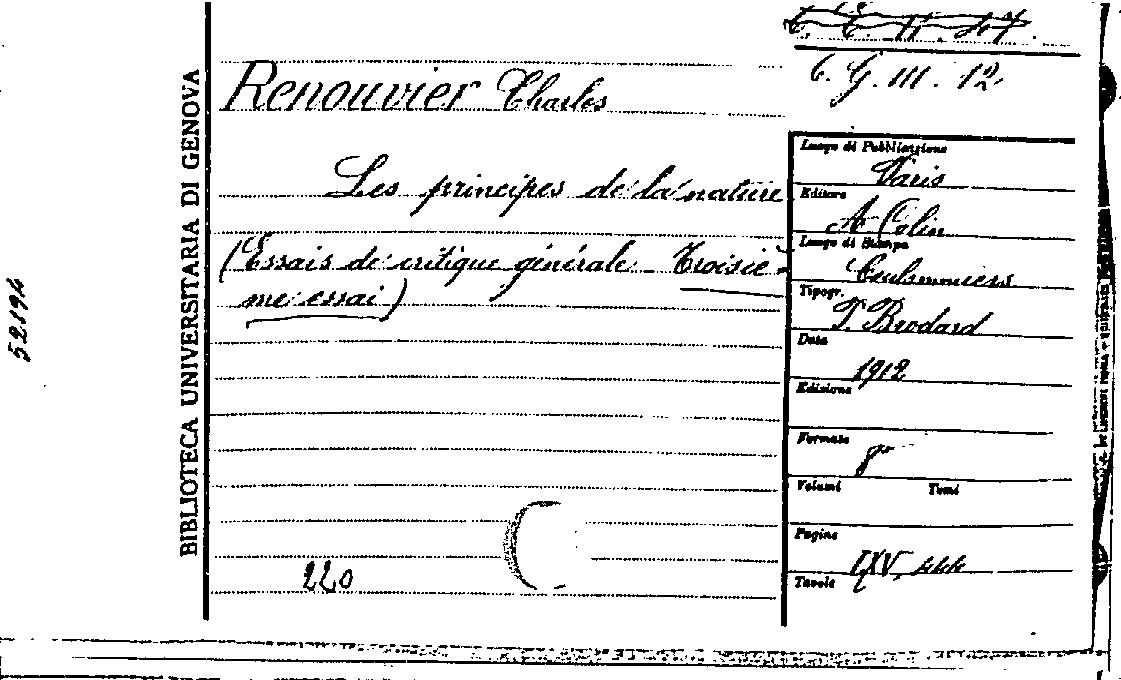 6. G. III. 12
Renouvier Charles
Les principes de la nature
(Essais de critique générale. Troisiè-
me essai)
220
Luogo di Pubblicazione
Paris
Editore
A. Colin
Luogo di Stampa
Coulommiers
Tipogr.
P. Brodard
Data
1912
Edizione
Formato
8°
Volumi Tomi
Pagine
LXV, 444
Tavole
BIBLIOTECA UNIVERSITARIA DI GENOVA
52194